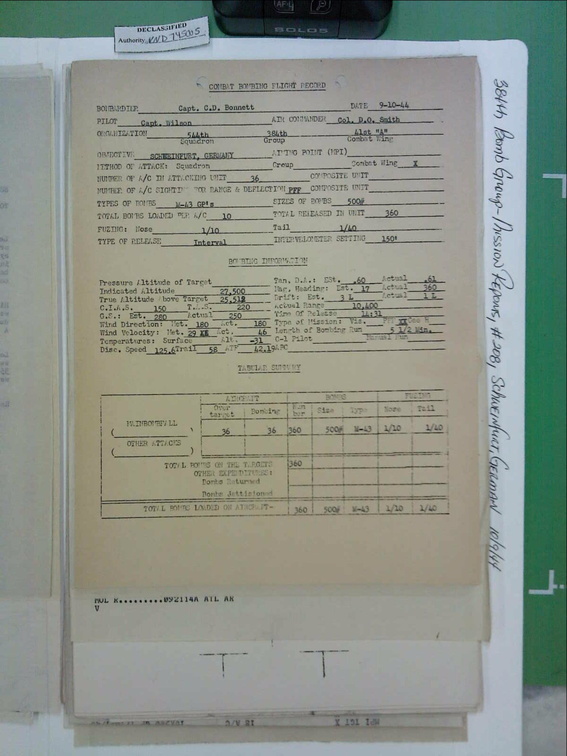 DECLASSIFIED
Authority NND 745005
SOLO5
COMBAT BOMBING FLIGHT RECORD
BOMBARDIER Capt. C.D. Bonnett DATE 9-10-44
PILOT Capt. Wilson AIR COMMANDER Col. D.O. Smith
ORGANIZATION 544th 384th 41st "A"
Squadron Group Combat Wing
OBJECTIVE SCHWEINFURT, GERMANY AIMING POINT (MPI)
METHOD OF ATTACK: Squadron Group Combat Wing X
NUMBER OF A/C IN ATTACKING UNIT 36 COMPOSITE UNIT
NUMBER OF A/C SIGHTING FOR RANGE & DEFLECTION PFF COMPOSITE UNIT
TYPES OF BOMBS M-43 GP's SIZES OF BOMBS 500#
TOTAL BOMBS LOADED PER A/C 10 TOTAL RELEASED IN UNIT 360
FUZING: Nose 1/10 Tail 1/40
TYPE OF RELEASE Interval INTERVALOMETER SETTING 150'
BOMBING INFORMATION
Pressure Altitude of Target Tan. D.A.: Est. .60 Actual .61
Indicated Altitude 27,500 Mag. Heading: Est. 17 Actual 360
True Altitude Above Target 25,512 Drift: Est. 3 L Actual 1 L
C.I.A.S. 150 T.A.S. 220 Actual Range 10,400
G.S.: Est. 280 Actual 250 Time Of Release 14:31
Wind Direction: Met. 180 Act. 180 Type of Mission: Vis. PFF XX
Wind Velocity: Met. 29 Act. 46 Length of Bombing Run 5 1/2 Min.
Temperatures: Surface Alt. -31 C-1 Pilot Manual Run
Disc. Speed 125.6 Trail 58 ATF 42.19
TABULAR SUMMARY
AIRCRAFT BOMBS FUZING
Over target Bombing Number Size Type Nose Tail
MAINBOMBFALL 36 36 360 500# M-43 1/10 1/40
OTHER ATTACKS
TOTAL BOMBS ON THE TARGETS 360
OTHER EXPENDITURES:
Bombs Returned
Bombs Jettisioned
TOTAL BOMBS LOADED ON AIRCRAFT- 360 500# M-43 1/10 1/40
384th Bomb Group - Mission Reports, #208, Schweinfurt, German 10/9/44
092114A ATL AR
V